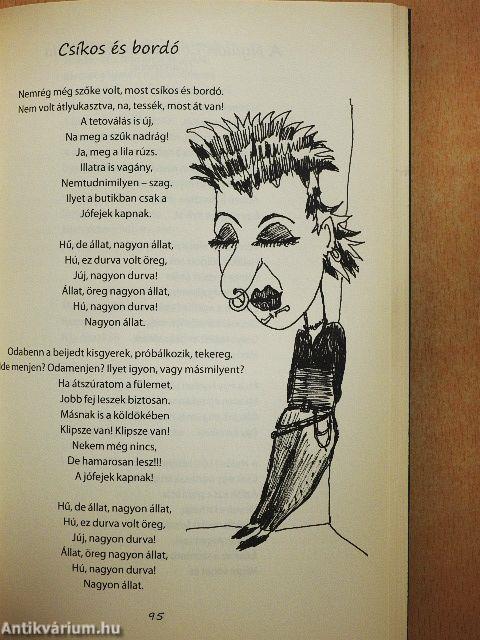 Csíkos és bordó
Nemrég még szőke volt, most csíkos és bordó.
Nem volt átlyukasztva, na, tessék, most át van!
A tetoválás is új,
Na meg a szűk nadrág!
Ja, meg a lila rúzs.
Illatra is vagány,
Nemtudnimilyen – szag.
Ilyet a butikban csak a
Jófejek kapnak.
Hű, de állat, nagyon állat,
Hú, ez durva volt öreg,
Júj, nagyon durva!
Állat, öreg nagyon állat,
Hú, nagyon durva!
Nagyon állat.
Odabenn a beijedt kisgyerek, próbálkozik, tekereg.
menjen? Odamenjen? Ilyet igyon, vagy másmilyent?
Ha átszúratom a fülemet,
Jobb fej leszek biztosan.
Másnak is a köldökében
Klipsze van! Klipsze van!
Nekem még nincs,
De hamarosan lesz!!!
A jófejek kapnak!
Hű, de állat, nagyon állat,
Hú, ez durva volt öreg,
Júj, nagyon durva!
Állat, öreg nagyon állat,
Hú, nagyon durva!
Nagyon állat.
95
Antikvárium.hu